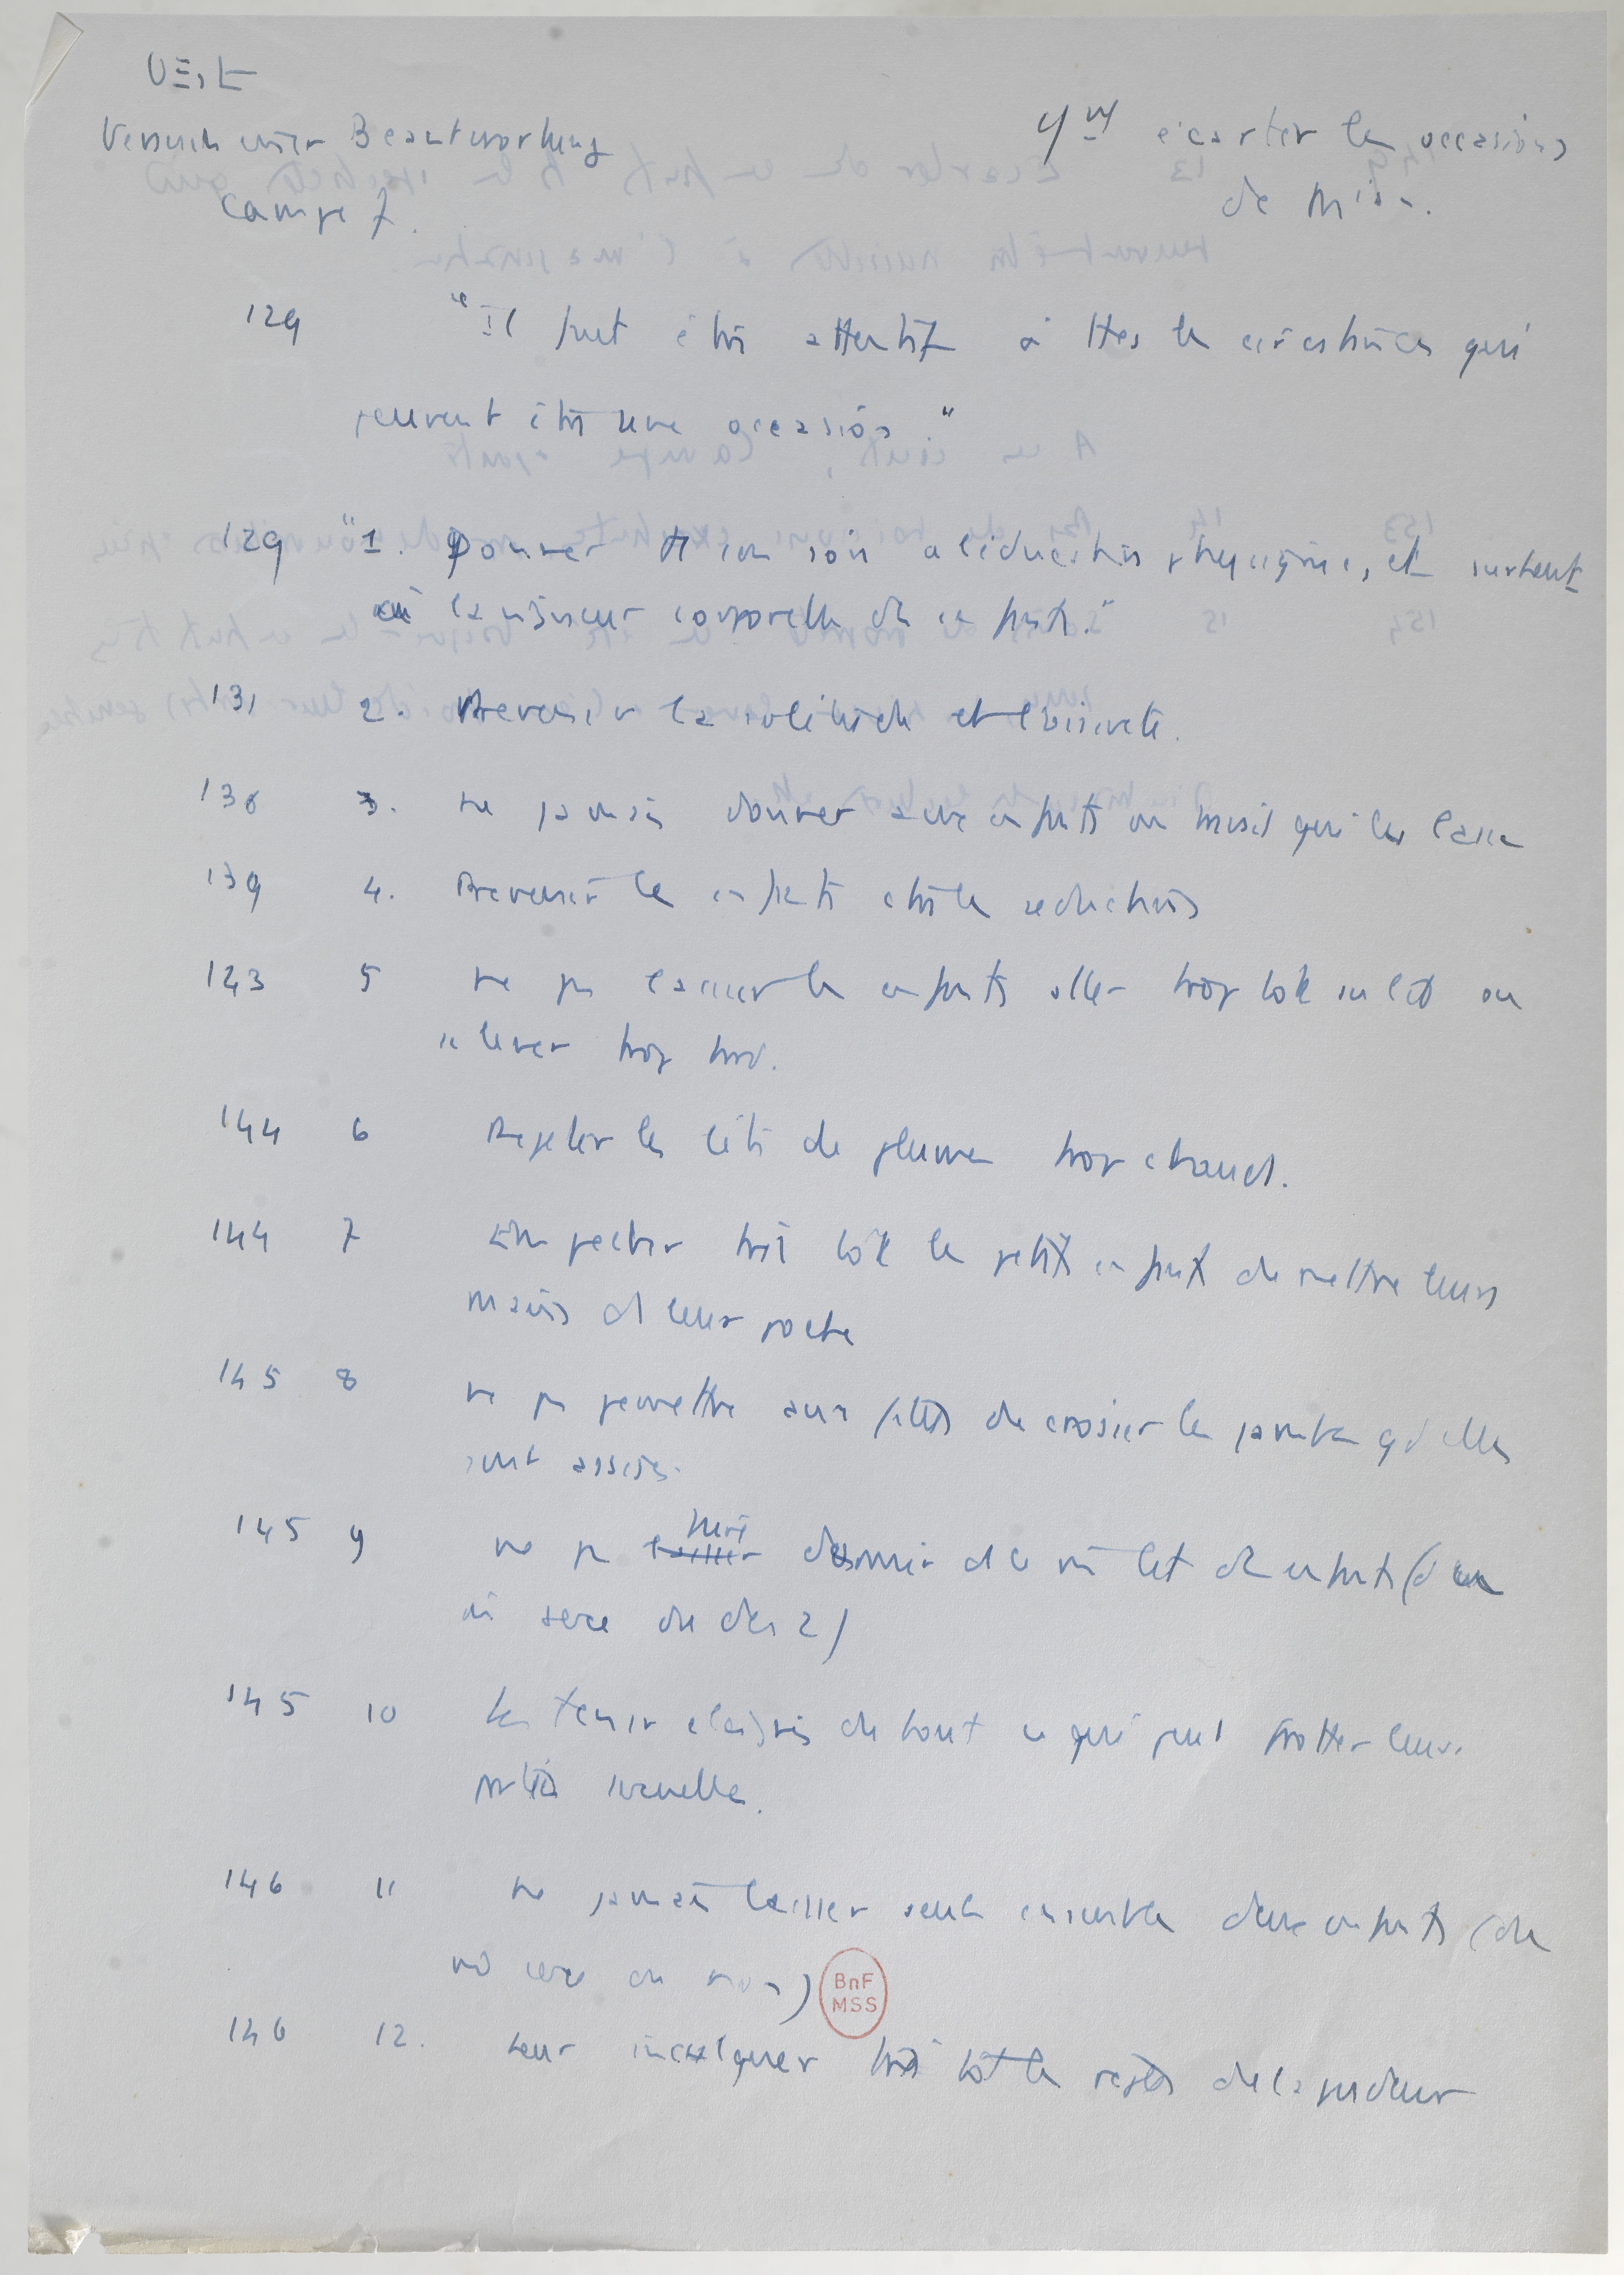 VEST
Versuch einer Beantwortung
Campe 7.
4 écarter les occasions
de
129 "Il faut être attentif à ttes les circonstances qui
peuvent être une occasion."
129 "1. Donner tt son soin à l'éducation physique, et surtout
à la vigueur corporelle des enfants."
131 2. Prévenir la solitude et l'oisiveté.
136 3. ne jamais donner aux enfants un travail qui les lasse
139 4. Prévenir les enfants contre les séductions
143 5 ne pas laisser les enfants aller trop tôt au lit ou
se lever trop tard.
144 6 Rejeter les lits de plumes trop chauds.
144 7 Empêcher très tôt les petits enfants de mettre leurs
mains ds leur poche
145 8 ne pas permettre aux filles de croiser les jambes qd elles
sont assises.
145 9 ne pas laisser faire dormir ds le m lit des enfants (d'un
m sexe ou des 2)
145 10 les tenir éloignés de tout ce qui peut frotter leurs
parties sexuelles.
146 11 ne jamais laisser seuls ensemble deux enfants (de
m sexe ou non)
BnF
MSS
146 12. Leur inculquer très tôt les règles de la pudeur